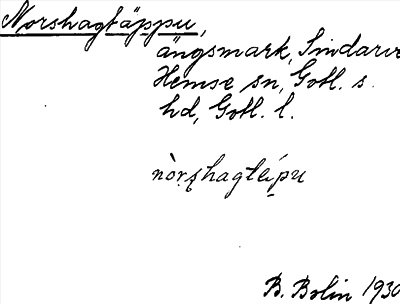 Norshagtäppu,
ängsmark, Sindarve
Hemse sn, Gotl. s.
hd, Gotl. l.
nòrshagtéipu
B. Bolin 1930